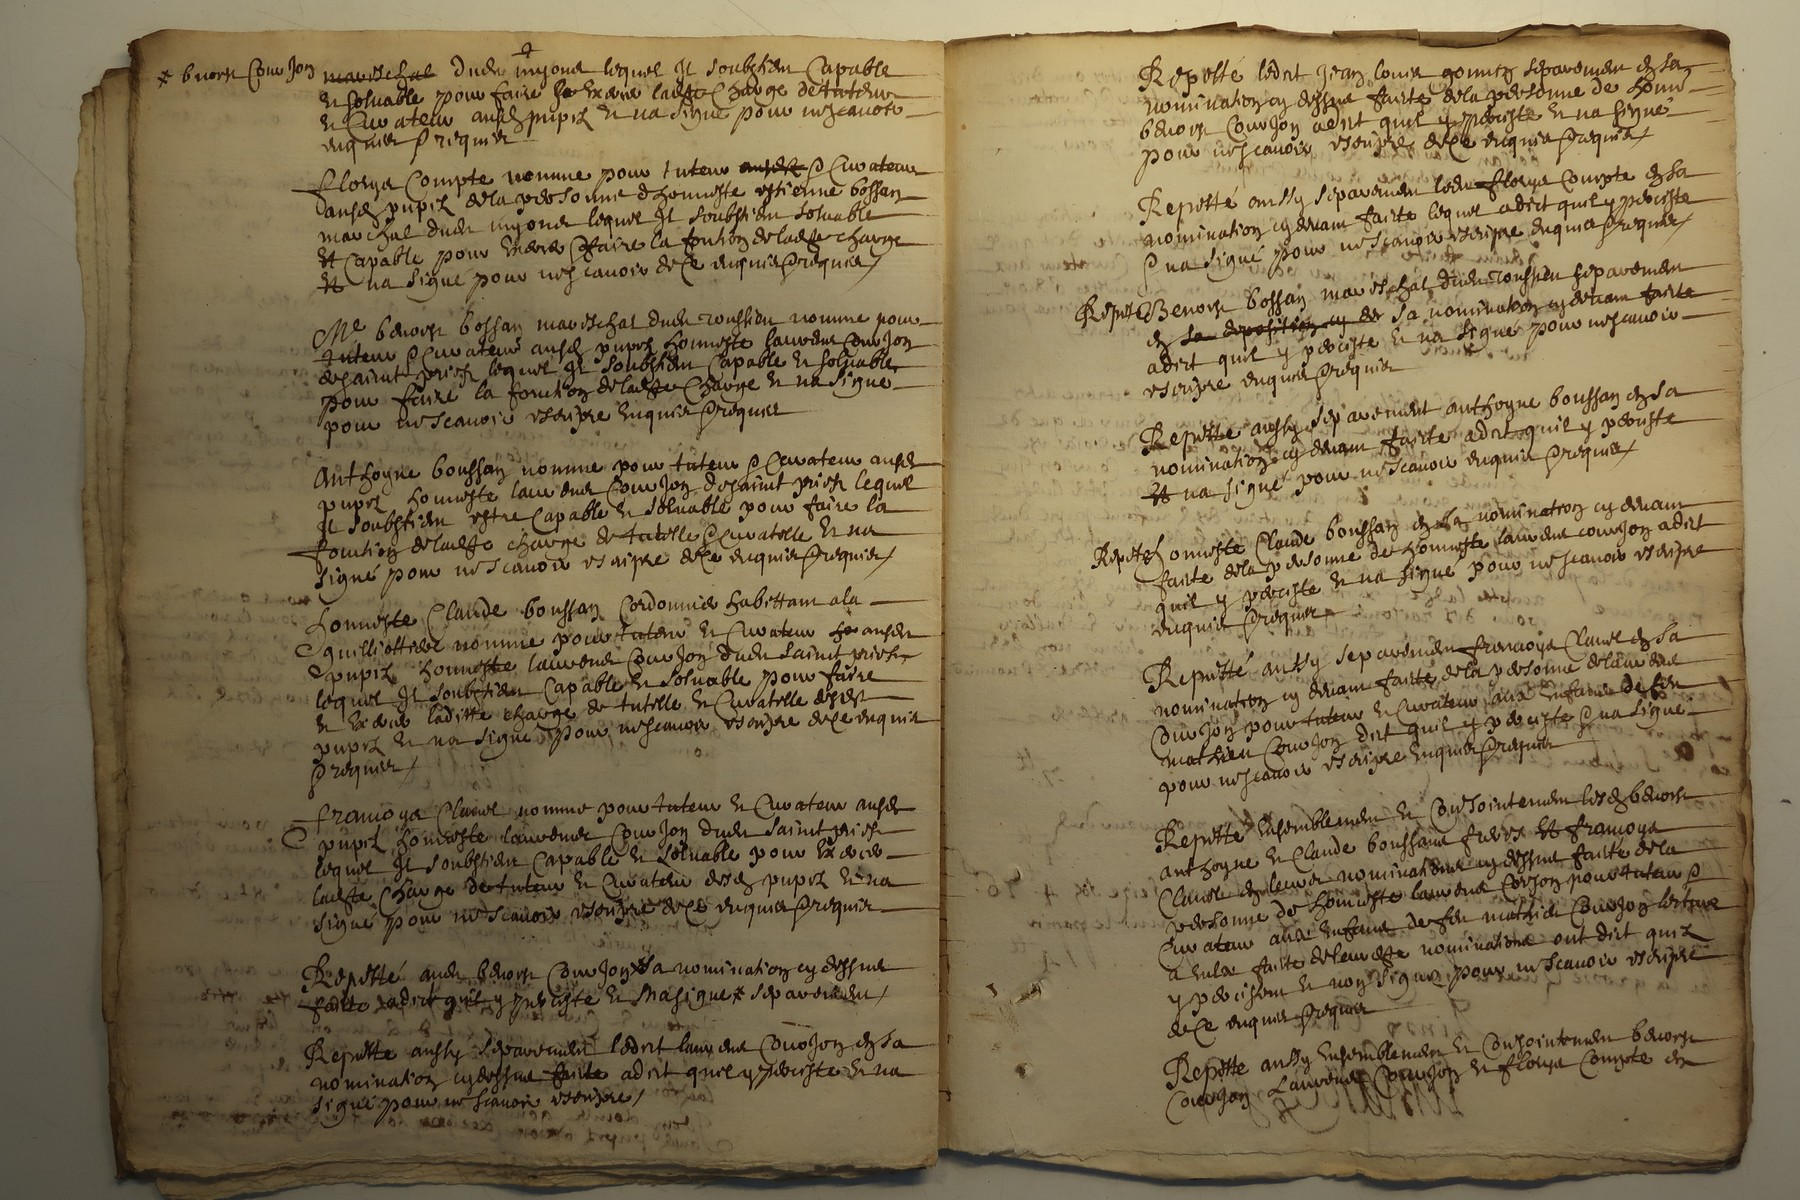 * benoist Courjon mareschal dudit myons lequel Il soubstient Capable
Et solvable pour faire Et Exercer ladite Charge de tuteur
Et Curateur ausdits pupilz Et na signe pour ne scavoir
enquis & requis
fleurys Compte nomme pour tuteur & Curateur
ausdits pupilz de la personne dhonneste estienne bossan
mareschal dudit myons lequel Il soubstient solvable
Et Capable pour Exercer & faire la fontion de ladite charge
Et na signé pour ne scavoir de Ce enquis & requis /
Me benoist bossan mareschal dudit toussieu nomme pour
tuteur & Curateur ausdits pupilz honneste laurent Courjon
de saint priest lequel Il soubstient Capable Et solvable
pour faire la fonction de ladite Charge Et na signe
pour ne scavoir escripre Enquis & requis
Anthoyne boussan nomme pour tuteur & Curateur ausdits
pupilz honneste laurent Courjon de saint priest lequel
Il soubstient estre Capable Et solvable pour faire la
fonction de ladite charge de tutelle & Curatelle Et na
signé pour ne scavoir escripre de Ce enquis & requis /
honneste Claude boussan Cordonnier habittant a la
guilliottiere nomme pour tuteur Et Curateur ausdits
pupilz honneste laurent Courjon dudit saint priest
lequel Il soubstient Capable Et solvable pour faire
Et Exercer laditte charge de tutelle Et Curatelle desdits
pupilz Et na signé pour ne scavoir escripre de Ce enquis
& requis /
francoys Clavel nomme pour tuteur Et Curateur ausdits
pupilz honneste laurent Courjon dudit saint priest
lequel Il soubstient Capable Et solvable pour Exercer
ladite Charge de tuteur Et Curateur desdits pupilz Et na
signé pour ne scavoir escripre de Ce enquis & requis
Repetté audit benoist Courjon sa nomination cy dessus
faite adit quil y persiste Et na signe * separement /
Repette aussy separement ledit laurent Courjon en sa
nomination cy dessus faite a dit quil y persiste Et na
signé pour ne scavoir escripre /
Repetté ledit Jean louis gonnet separement en sa
nomination cy dessus faitte de la personne de honn
benoist Courjon a dit quil y persiste Et na signé
pour ne scavoir escripre de Ce enquis & requis /
Repetté aussy separement ledit fleurys Compte en sa
nomination cy devant faite lequel a dict quil y persiste
& na signé pour ne scavoir escripre enquis & requis /
Repetté Benoist bossan mareschal dudit toussieu separement
en sa deposition cy de sa nomination cy devant faite
a dict quil y persiste Et na signé pour ne scavoir
escripre enquis & requis
Repette aussy separement anthoyne boussan en sa
nomination cy devant faite a dit quil y persiste
Et na signé pour ne scavoir enquis & requis /
Repetté honneste Claude boussan en sa nomination cy devant
faite de la personne de honneste laurent courjon a dict
quil y persiste Et na signé pour ne scavoir escripre
enquis & requis /
Repetté aussy separement francoys Clavel en sa
nomination cy devant faite de la personne de laurent
Courjon pour tuteur Et Curateur aux Enfans de feu
mathieu Courjon dict quil y persiste & na signé
pour ne scavoir escripre Enquis & requis
Repetté Ensemblement Et Conjointement lesdits benoist
anthoyne Et Claude boussans freres Et francoys
Clavel en leurs nominations cy dessus faite de la
personne de honneste laurent Corjon pour tuteur &
Curateur aux Enfans de feu mathieu Courjon lecture
a eulx faite de leurdite nomination ont dict quilz
y persistent Et non signé pour ne scavoir escripre
de Ce enquis & requis
Repette aussy Ensemblement Et Conjointement benoist
Courjon Laurent Courjon Et fleurys Compte en